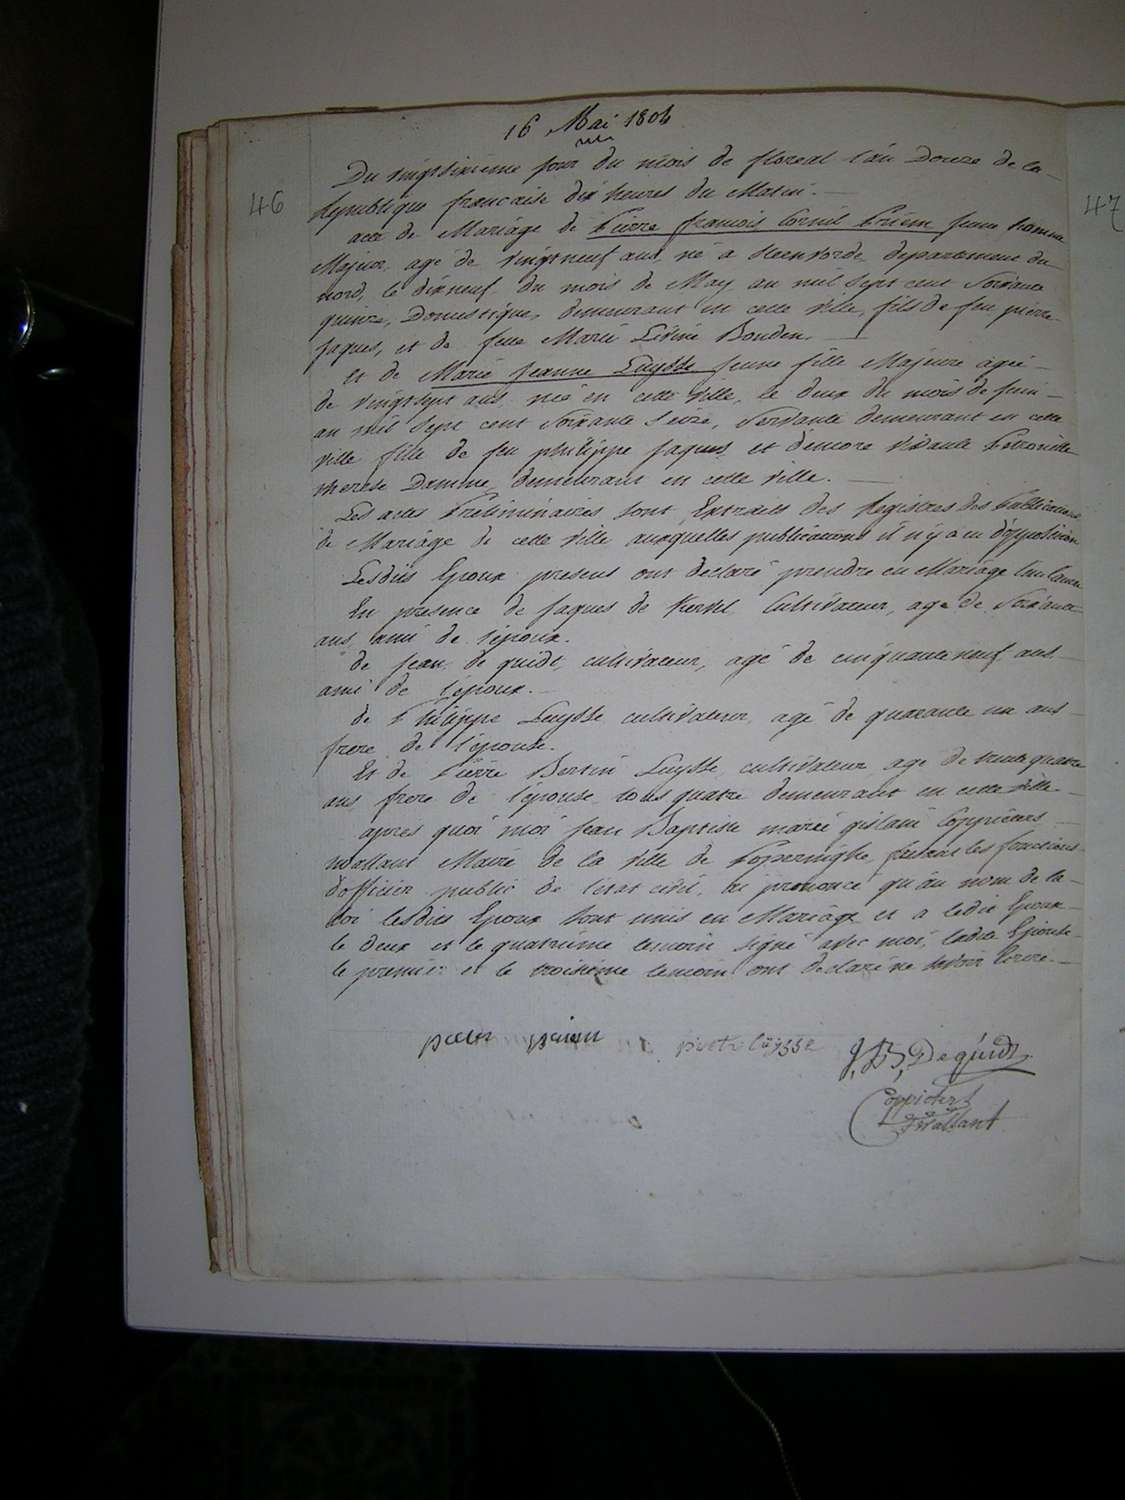 16 Mai 1804
46
47
Du vingtsixieme jour du mois de floreal l'an Douze de la
Republique francaise dix heures du Matin.
acte de Mariage de Pierre francois Cornil Priem jeune homme
Majeur, agé de vingtneuf ans né à Steenvorde departement du
nord, le dixneuf du mois de May an mil sept cent Soixante
quinze, Domestique, demeurant en cette ville, fils de feu pierre
jaques, et de feue Marie Livine Bouden.
et de Marie Jeanne Luysse jeune fille Majeure agée
de vingtsept ans née en cette ville, le deux du mois de juin
an mil sept cent Soixante Seize, Servante demeurant en cette
ville fille de feu philippe jaques et d'encore vivante Petronille
therese Damme, demeurant en cette ville.
Les actes Préliminaires sont Extraits des Registres des Publications
de Mariage de cette ville auxquelles publications il n'y a eu d'opposition
Lesdits Epoux presens ont declaré prendre en Mariage l'un l'autre
En presence de jaques de Kervel Cultivateur, agé de Soixante
ans, ami de l'époux.
de jean de quidt, cultivateur, agé de cinquante neuf ans
ami de l'époux.
de Philippe Luysse cultivateur, agé de quarante un ans
frere de l'épouse.
Et de Pierre Bertin Luysse, cultivateur agé de trente quatre
ans frere de l'épouse, tous quatre demeurant en cette ville
après quoi moi Jean Baptiste marie gislain Coppieters
wallant Maire de la ville de Poperinghe faisant les fonctions
d'officier public de l'état civil, ai prononcé qu'au nom de la
loi lesdits Epoux sont unis en Mariage et a ledit Epoux
le deux et le quatrième temoin signé avec moi, ladite Epouse
le premier et le troisième temoin ont declaré ne savoir Ecrire.
pieter priem
pieter luysse
J, B, Dequidt
Coppieters
wallant